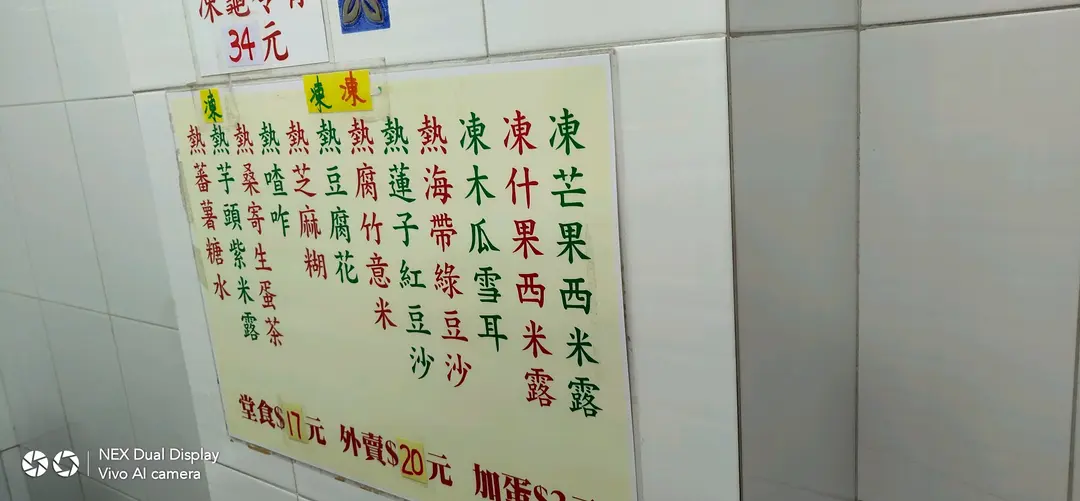 34元
凍 凍
凍
凍芒果西米露
凍什果西米露
凍木瓜雪耳
熱海帶綠豆沙
熱蓮子紅豆沙
熱腐竹意米
熱豆腐花
熱芝麻糊
熱喳咋
熱桑寄生蛋茶
熱芋頭紫米露
熱蕃薯糖水
堂食$17元 外賣$20元 加蛋$
NEX Dual Display
Vivo AI camera